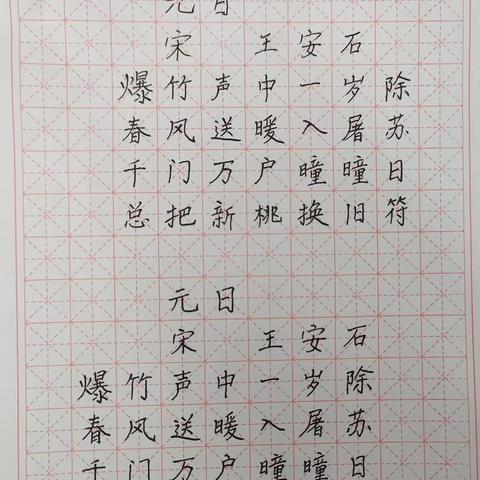 元日
宋 王安石
爆竹声中一岁除
春风送暖入屠苏
千门万户瞳瞳日
总把新桃换旧符
元日
宋 王安石
爆竹声中一岁除
春风送暖入屠苏
千门万户瞳瞳日